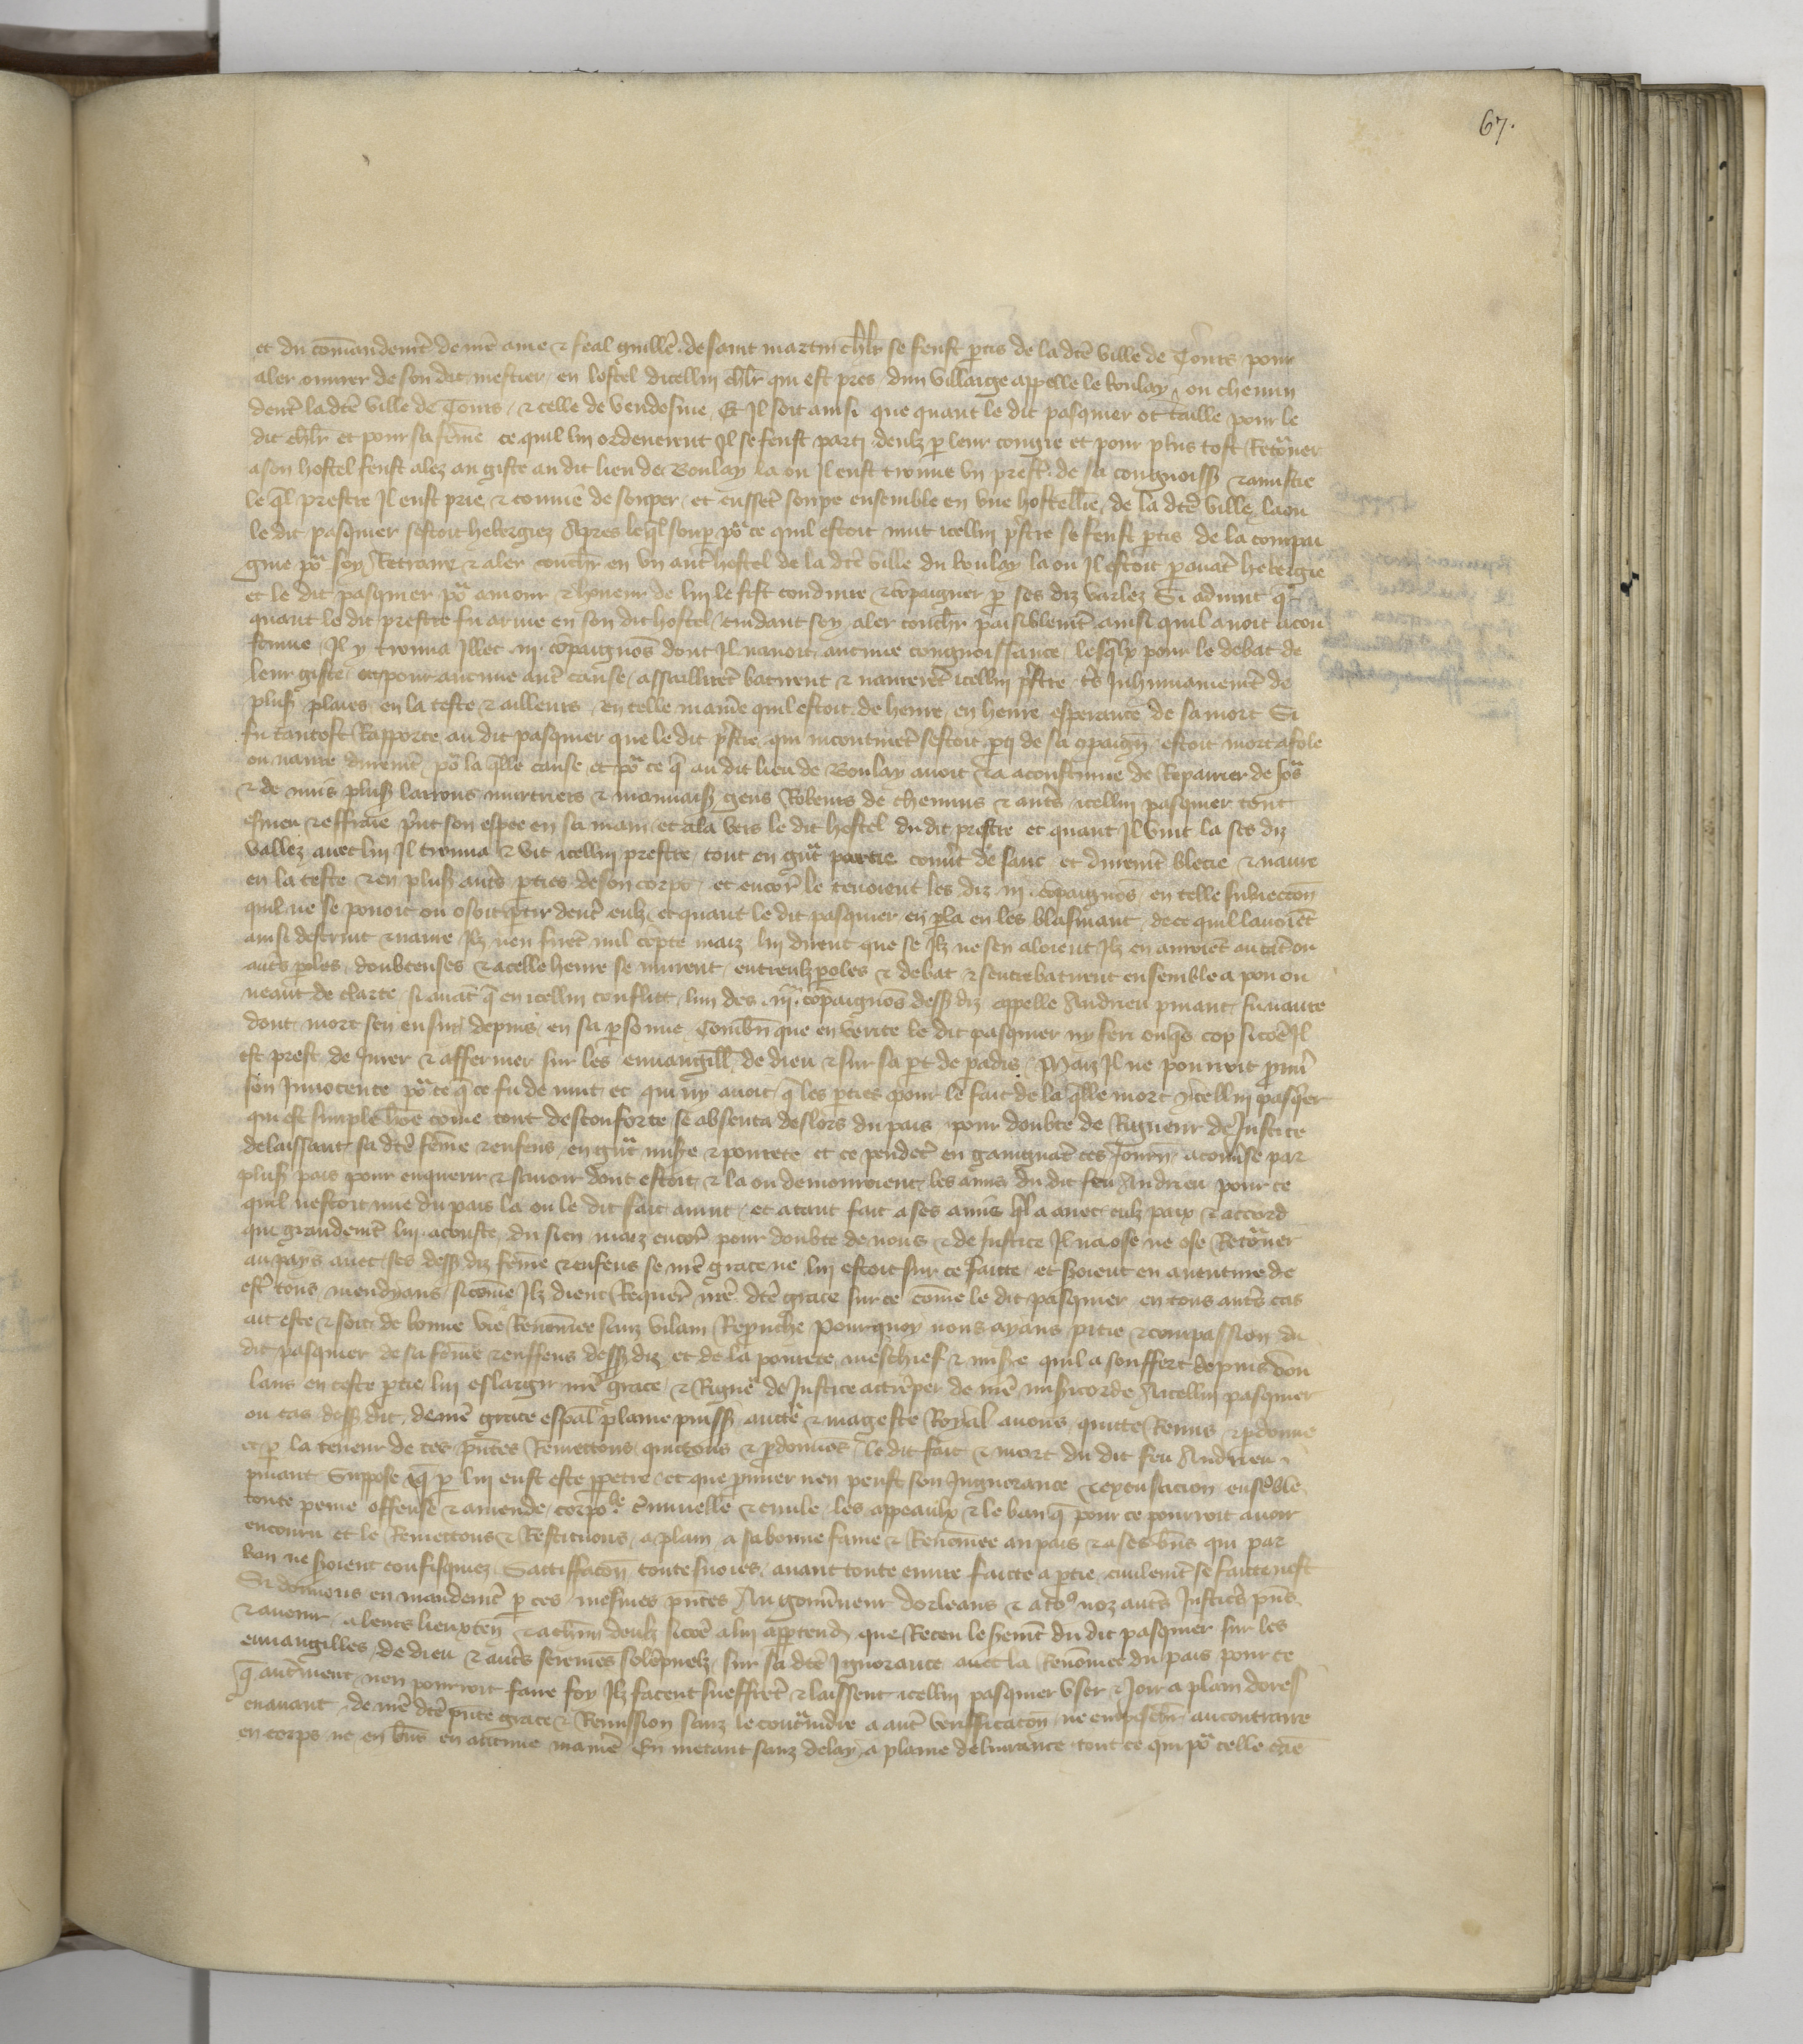 67.
et du com̄andemt̄ de nrē ame & feal guillē de saint martin chlr̄ se feust ptis de la dcē ville de Tours pour
aler ouurer de son dit mestier en lostel dicellui chlr̄ qui est pres dun villaige appelle le boulay ou chemin
dentˀ la dcē ville de Tours & celle de vendosme Et Il soit ainsi que quant le dit pasquier ot taille pour le
dit chlr̄ et pour sa fem̄e ce quil lui ordenerent Il se feust parti deulz p leur congie et pour plus tost Retoˀner
a son hostel feust alez au giste au dit lieu de Boulay la ou Il eust trouue vn prestˀ de sa congnoissˀ & amistie
le ql̄ prestre Il eust prie & conuie de souper et eussēt soupe ensemble en vne hostellie de la dcē ville la ou
le dit pasquier sestoit hebergiez Apres leql̄ soup poˀ ce quil estoit nuit icellui pˀstre se feust ptis de la compai
gnie poˀ soy Retraire & aler couchˀ en vn autˀ hostel de la dcē ville du boulay la ou Il estoit p auāt hebergie
et le dit pasquier poˀ amour & honeur de lui le fist conduire & cōpaignier p ses diz varlez Si aduint qˀ
quant le dit prestre fu arriue en son dit hostel cuidant soy aler couchˀ paisiblemt̄ ainsi quil auoit acou
stume Il y trouua Illec iij cōpaignōs dont Il nauoit aucune congnoissance lesqlx̄ pour le debat de
leur giste ou pour aucune autˀ cause assaillirēt batirent & naurerēt icellui pˀstre trˀ Inhumainemt̄ de
plusˀ plaies en la teste & ailleurs en telle manieˀ quil estoit de heure en heure esperance de sa mort Si
fu tantost Rapporte au dit pasquier que le dit pˀstre qui incontinēt sestoit pti de sa cōpaignˀ estoit mort afole
ou naure duremt̄ poˀ la qlle cause et poˀ ce q̄ au dit lieu de Boulay auoit & a acoustume de Repairier de joˀs
& de nuis plusˀ larrons murtriers & mauuaisˀ gens Robeurs de chemins & autˀs icellui pasquier tout
esmeu & effraie pˀnt son espee en sa main et ala vers le dit hostel du dit prestre et quant Il vint la ses diz
vallez auec lui Il trouua & vit icellui prestre tout en gˀnt partie couuˀt de sanc et duremt̄ blecie & naure
en la teste & en plusˀ autˀs pties de son corps et encorˀ le tenoient les diz iij cōpaignōs en telle subiecōn
quil ne se pouoit ou osoit ptir dentˀ eulz et quant le dit pasquier en pla en les blasmant de ce quil lauoiēt
ainsi destruit & naure Ilz nen firēt nul cōpte maiz lui dirent que se Ilz ne sen aloient Ilz en auroiēt autāt ou
autˀs poles doubteuses & a celle heure se murent entreulz poles & debat & sentrebatirent ensemble a pou ou
neant de clarte si auāt q̄ en icellui conflict lun des iij cōpaignōs dessˀ diz appelle Andrieu pinant fu naure
dont mort sen ensui depuis en sa psonne Combn̄ que en verite le dit pasquier ny feri onqˀs cop si com̄e Il
est prest de Jurer & affermer sur les euuangillˀ de dieu & sur sa pt de padis Maiz Il ne pourroit prouuˀ
son Innocence poˀ ce q̄ ce fu de nuit et qui ny auoit q̄ les pties pour le fait de la qlle mort icellui pasqˀer
qui est simple hōe com̄e tout desconforte se absenta deslors du pais pour doubte de Rigueur de Justice
delaissant sa dcē fem̄e & enfens en gˀnt misˀe & pourete et ce pendēt en gaaignāt ces Journˀ a couuˀse par
plusˀ pais pour enquerir & sauoir dont estoit & la ou demouroient les amis du dit feu Andrieu pour ce
quil nestoit mie du pais la ou le dit fait auint et a tant fait a ses amis ql̄ a auec eulz paix & accord
qui grandemt̄ lui a couste du sien maiz encorˀ pour doubte de nous & de Justice Il na ose ne ose Retoˀner
au pays auec ses dessˀ diz fem̄e & enfens se nrē grace ne lui estoit sur ce faitte et seroient en auenture de
estˀ tous mendians sicom̄e Ilz dient Requerˀ nrē dcē grace sur ce com̄e le dit pasquier en tous autˀs cas
ait este & soit de bonne vie Renom̄ee sanz vilain Reprouche Pourquoy nous ayans pitie & compassion du
dit pasquier de sa fem̄e & enffens dessˀ diz et de la pourete meschief & misˀe quil a souffert depuis
lans en ceste ptie lui eslargir nrē grace & Rigueˀ de Justice attrēper de nrē misˀicorde A icellui pasquier
ou cas dessˀ dit de nrē grace espāl plaine puissˀ auctˀte & mageste Royal auons quitte Remis & pdonne
et p la teneur de ces pn̄tes Remettons quictons & pdonnōs le dit fait & mort du dit feu Andrieu
pinant Suppose q̄ p lui eust este ppetre et que prouuer nen peust son Ingnorance & excusacion ensēble
toute peine offense & amende corpoˀle cˀminelle & ciuile les appeaulx & le ban q̄ pour ce pourroit auoir
encouru et le Remettons & Restituons a plain a sa bonne fame & Renom̄ee au pais & a ses bn̄s qui par
ban ne seroient confisquez Sattiffacōn toutesuoies auant toute euure faicte a ptie ciuilemt̄ se faicte nest
Si donnons en mandemt̄ p ces mesmes pn̄tes Au gouuˀneur dorleans & a toˀ noz autˀs Justiciˀs pn̄s
& auenir a leurs lieuxten̄ & a chm̄ deulz sicōe a lui apptendra que Receu le sermt̄ du dit pasquier sur les
euuangilles de dieu & autˀs seremēs solēpnelz sur sa dcē Ignorance auec la Renōmee du pais pour ce
q̄ autˀment nen pourroit faire foy Ilz facent sueffrēt & laissent icellui pasquier vser & Joir a plain dores
enauant de nrē dcē pn̄te grace & Remission sanz le contˀaindre a autˀ veriffacacōn ne empeschˀ au contraire
en corps ne en bn̄s en aucune manieˀ En metant sanz delay a plaine deliurance tout ce qui poˀ celle cāe